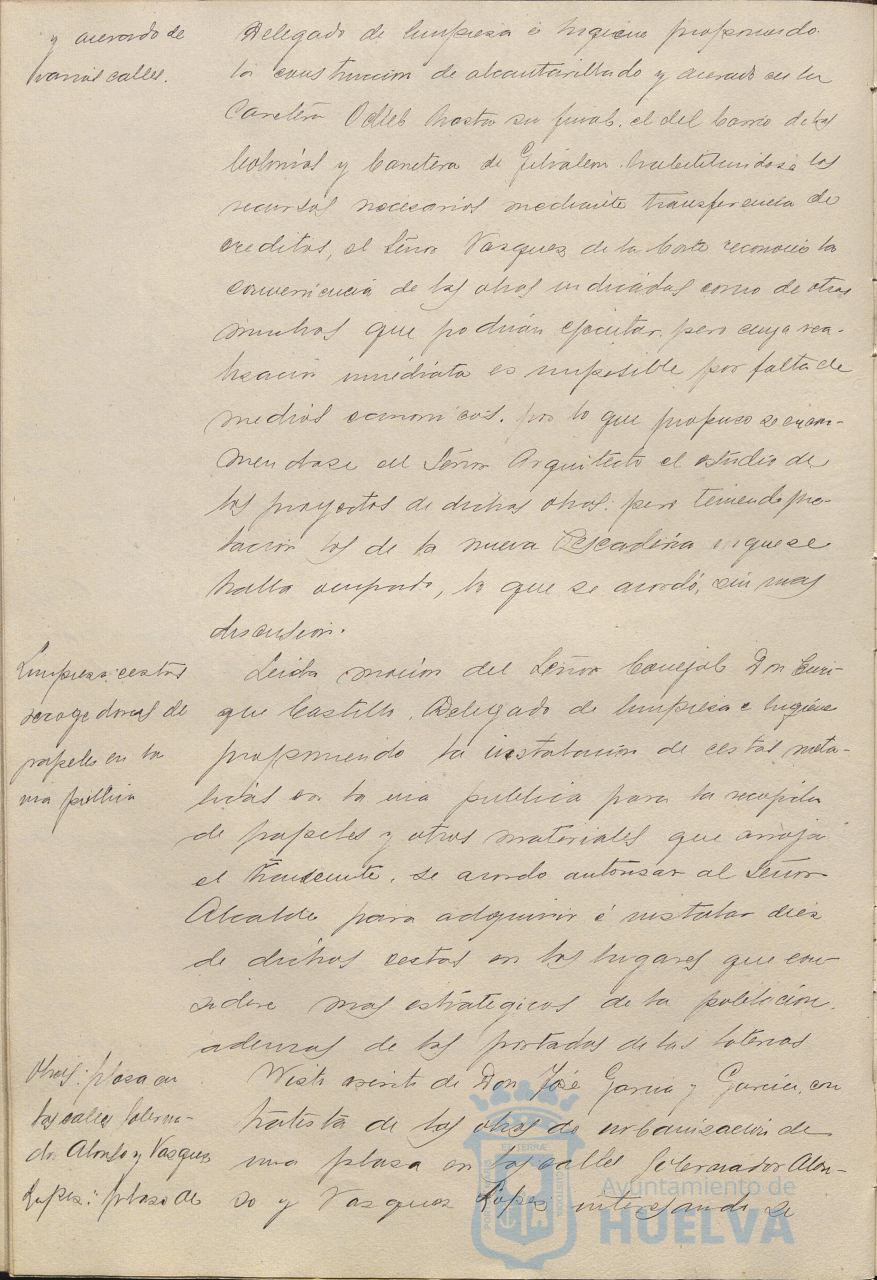 y acerado de
varias calles.
Delegado de limpieza é higiene proponiendo
la construcción de alcantarillado y acerado en la
Carretera Odiel hasta su final, el del barrio de las
Colonias y Carretera de Gibraleon habilitandose los
recursos necesarios mediante transferencia de
creditos, el Señor Vasquez de la Corte reconoció la
conveniencia de las obras indicadas como de otras
muchas que podrian ejecutar, pero cuya rea-
lisación inmediata es imposible por falta de
medios economicos, por lo que propuso se encom-
mendase al Señor Arquitecto el estudio de
los proyectos de dichas obras, pero teniendo pre-
lación los de la nueva Pescaderia en que se
halla ocupado, lo que se acordó, sin mas
discusion.
Limpieza: cestas
recogedoras de
papeles en la
via publica
Leida moción del Señor Concejal Don Enri-
que Castillo, Delegado de limpieza e higiene
proponiendo la instalación de cestas meta-
licas en la via publica para la recogida
de papeles y otros materiales que arroja
el transeunte, se acordo autorisar al Señor
Alcalde para adquirir é instalar dies
de dichas cestas en los lugares que con-
sidere mas estrategicos de la población,
ademas de las portadas de las loterias
Obras: plasa en
las calles Goberna-
dor Alonso y Vasquez
Lopez: plaso de
Visto escrito de Don José Garcia y Garcia, con
tratista de las obras de urbanisación de
una plasa en las calles Gobernador Alon-
so y Vasquez Lopez interesando se
Ayuntamiento de
HUELVA